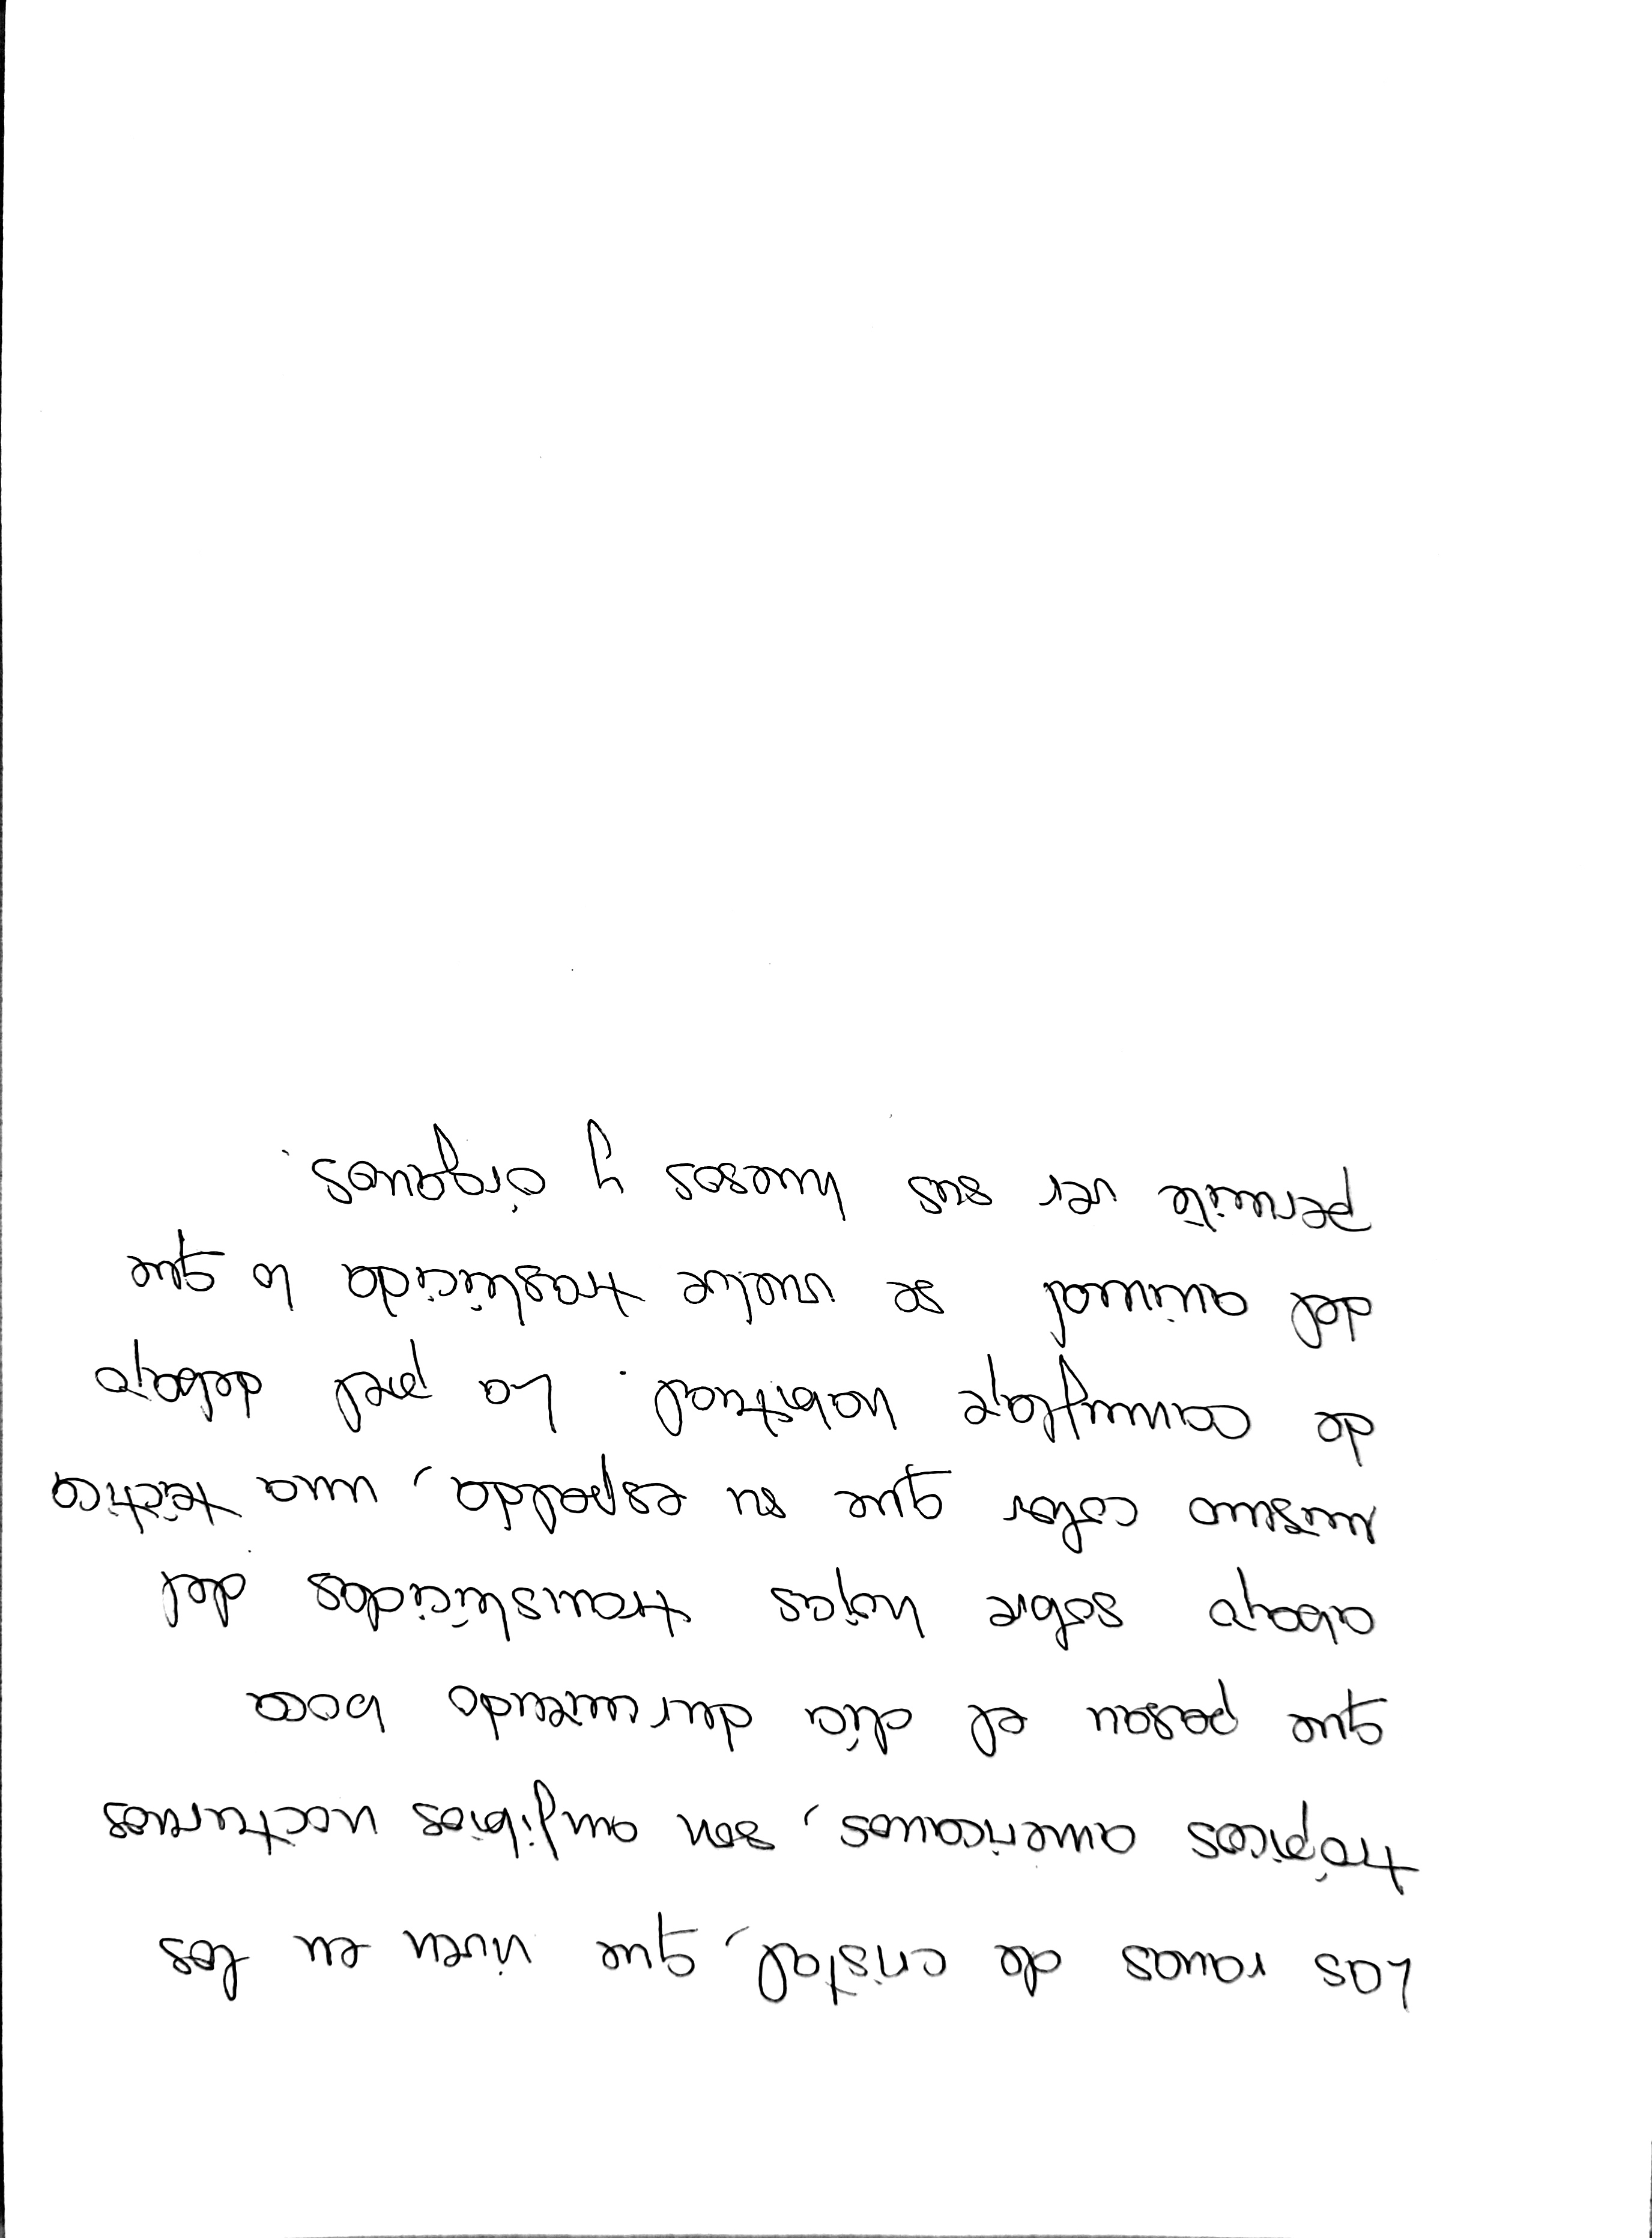 Las ranas de cristal, que viven en los
trópicos americanos, son anfibios nocturnos
que pasan el día durmiendo boca
abajo sobre hojas translúcidas del
mismo color que su espalda, una táctica
de camuflaje habitual. La piel debajo
del animal se vuelve traslúcida lo que
permite ver sus huesos y órganos.